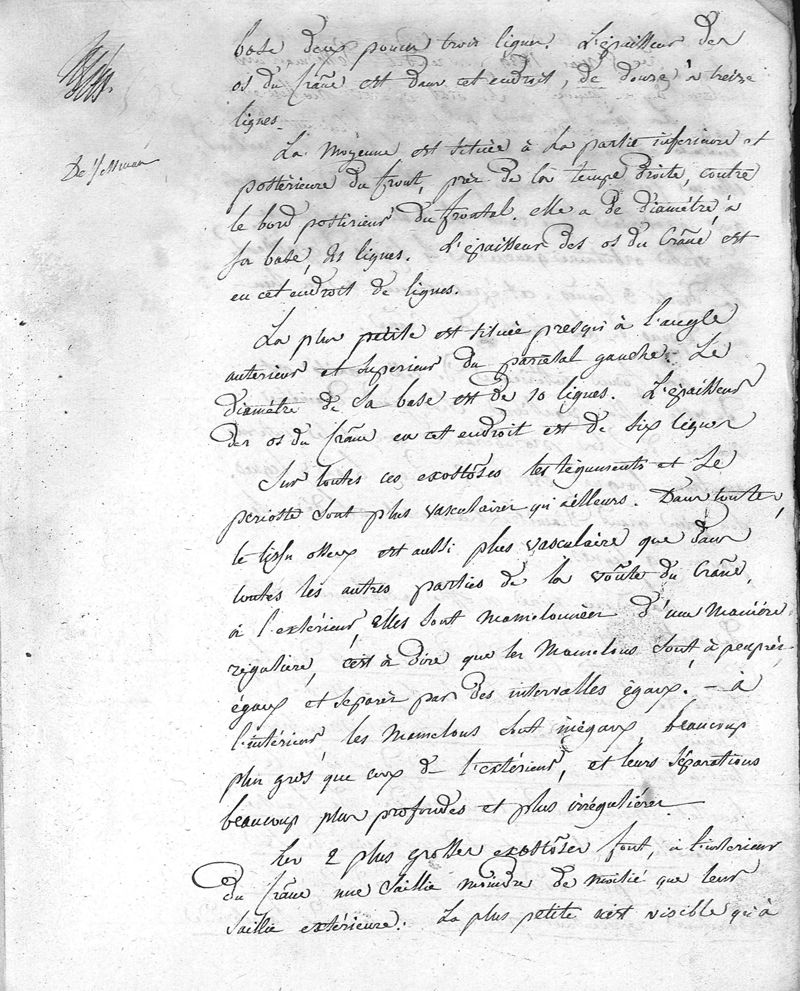 base deux pouces trois lignes. L'épaisseur des
os du Crâne est dans cet endroit, de douze à treize
lignes.
La moyenne est située à la partie inferieure et
postèrieure du front, près de la tempe droite, contre
le bord postèrieur du frontal. elle a de diamétre, à
sa base, lignes. L'épaisseur des os du Crâne est
en cet endroit de lignes.
La plus petite est située presqu'à l'angle
anterieur et superieur du parietal gauche. Le
diamétre de sa base est de 10 lignes. L'épaisseur
des os du Crâne en cet endroit est de six lignes
Sur toutes ces exostôses les téguments et le
perioste sont plus vasculaires qu'ailleurs. Dans toutes,
le tissu osseux est aussi plus vasculaire que dans
toutes les autres parties de la voûte du Crâne,
à l'extérieur, elles sont mamelonnées d'une maniére
régulière, c'est à dire que les mamelons sont à peuprès
égaux et separés par des intervalles égaux. – à
l'intérieur, les mamelons sont inégaux, beaucoup
plus gros que ceux de l'extérieur, et leurs séparations
beaucoup plus profondes et plus irréguliéres
Les 2 plus grosses exostôses font, à l'interieur
du Crâne une saillie moindre de moitié que leur
saillie extérieure. La plus petite n'est visible qu'à